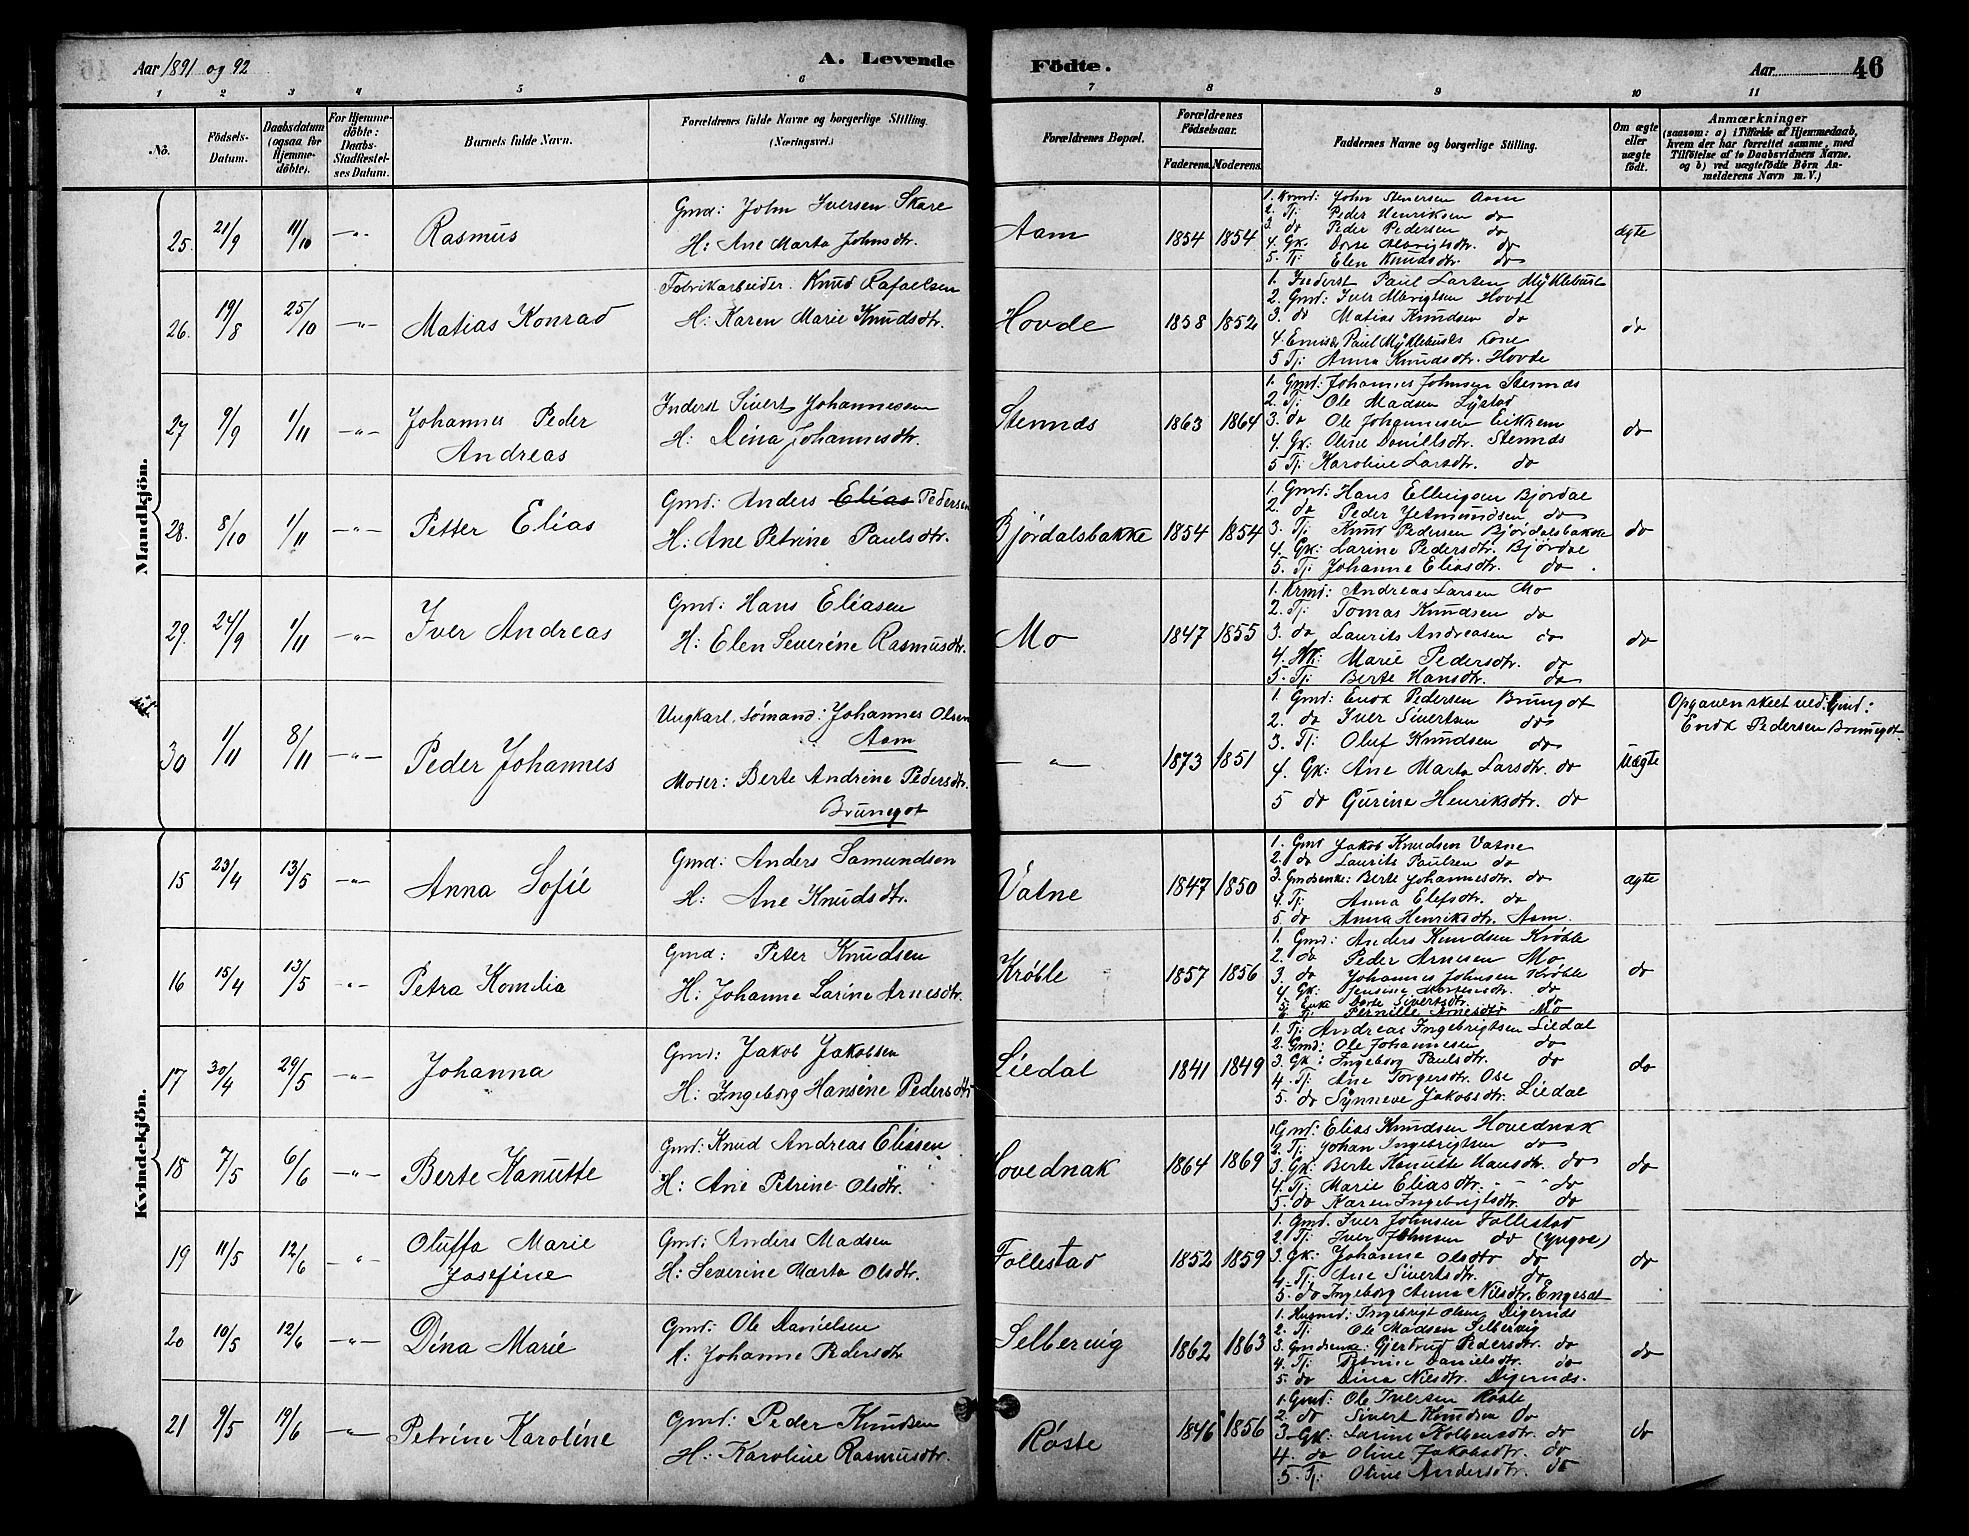 Aar 1891 og 92
A. Levende Födte.
Aar 46
1 2 3 4 5 6 7 8 9 10 11
No.
Födsels-Datum.
Daabsdatum (ogsaa for Hjemmedöbte).
For Hjemmedöbte: Daabs-Stadfæstelses Datum.
Barnets fulde Navn.
Forældrenes fulde Navne og borgerlige Stilling. (Næringsvei.)
Forældrenes Bopæl.
Forældrenes Födselsaar.
Faderens. Moderens.
Faddernes Navne og borgerlige Stilling.
Om ægte eller uægte födt.
Anmærkninger
(saasom: a) i Tilfælde af Hjemmedaab, hvem der har forrettet samme, med Tilföielse af to Daabsvidners Navne, og b) ved uægtefödte Börn Anmelderens Navn m. V.)
Mandkjön.
25. 21/9 11/10 -"- Rasmus
Gmd: John Iversen Skare
H: Ane Marta Johnsdtr.
Aam 1854 1854
1. Krmd: John Stenersen Aam
2. Tj: Peder Henriksen do
3. do Peder Pedersen do
4. Gk. Dorte Albrigtsdtr. do
5. Tj: Elen Knudsdtr. do
ægte
26. 19/8 25/10 -"- Matias Konrad
Fabrikarbeider. Knud Rafaelsen
H: Karen Marie Knudsdtr.
Hovde 1858 1852
1. Inderst Paul Larsen Myklebust
2. Gmd: Iver Albrigtsen Hovde
3. do Matias Knudsen do
4. Paul Myklebusts Kone
5 Tj: Anna Knudsdtr. Hovde
do
27 9/9 1/11 -"- Johannes Peder
Andreas
Inderst Sivert Johannesen
H: Dina Johannesdtr.
Stennes 1863 1864
1. Gmd: Johannes Johnsen Stennes
2. Tj: Ole Madsen Systad
3. do Ole Johannesen Eikrem
4. Gk: Oline Danielsdtr. Stennes
5 Tj: Karoline Larsdtr. do
do
28. 8/10 1/11 -"- Petter Elias
Gmd: Anders Elias Pedersen
H: Ane Petrine Paulsdtr.
Björdalsbakke 1854 1854
1. Gmd: Hans Ellingsen Bjørdal
2. do Peder Jetmundsen do
3. Tj: Knut Pedersen Bjørdalsbakke
4. Gk: Larine Pedersdtr. Bjørdal
5. Tj: Johanne Eliasdtr. do.
do
29. 24/9 1/11 -"- Iver Andreas
Gmd: Hans Eliasen
H: Elen Severine Rasmusdtr.
Mo 1847 1855
1. Krmd: Andreas Larsen Mo
2. Tj: Tomas Knudsen do
3. do Laurits Andreasen do
4. Gk: Marie Pedersdtr. do
5. Tj: Berte Hansdtr. do
do
30 1/11 8/11 -"- Peder Johannes
Ungkarl, sömand: Johannes Olsen
Aam
Moder: Berte Andrine Pedersdtr.
Brunegot
-"- 1873 1851
1. Gmd: Endr Pedersen Brungot
2. do Iver Sivertsen do
3. Tj: Oluf Knudsen do
4. Gk: Ane Marta Larsdtr. do
5 do Gurine Henriksdtr. do
Uægte
Opgaven skeet ved: Gmd:
Endr Pedersen Brunegot
Kvindekjön.
15 23/4 13/5 -"- Anna Sofie
Gmd: Anders Samundsen
H: Ane Knudsdtr.
Vatne 1847 1850
1. Gmd Jakob Knudsen Vatne
2. do Laurits Paulsen do
3. Gmdsenke: Berte Johannesdtr. do
4. Tj: Anna Elefsdtr. do
5. do Anna Henriksdtr. Aam.
ægte
16 15/4 13/5 -"- Petra Kornilia
Gmd: Peter Knudsen
H: Johanne Larine Arnesdtr.
Krøble 1857 1856
1. Gmd: Anders Knudsen Krøble
2. do Peder Arnesen Mo
3. do Johannes Johnsen Krøble
4 Gk: Jensine Mortensdtr. do
5. Enke Berte Sivertsdtr. do
6. Tj: Pernille Arnesdtr Mo
do
17 30/4 29/5 -"- Johanna
Gmd: Jakob Jakobsen
H: Ingeborg Hansine Pedersdtr
Liedal 1841 1849
1. Tj: Andreas Ingebrigtsen Liedal
2. Gmd: Ole Johannesen do
3. Gk: Ingeborg Paulsdtr. do
4. Tj: Ane Torgersdtr. Ose
5. do Synneve Jakobsdtr. Liedal
do
18 7/5 6/6 -"- Berte Kanutte
Gmd: Knud Andreas Eliasen
H: Ane Petrine Olsdtr.
Hovednak 1864 1869
1 Gmd: Elias Knudsen Hovednak
2. Tj: Johan Ingebrigtsen do
3. Gk: Berte Kanutte Hansdtr. do
4. Tj: Marie Eliasdtr. - - do
5. do Karen Ingebrigtsdtr. do
do
19 11/5 12/6 -"- Oluffa Marie
Josefine
Gmd: Anders Madsen
H: Severine Marta Olsdtr.
Follestad 1852 1859
1. Gmd. Iver Johnsen Follestad
2. Tj: Iver Johnsen do (Yngve)
3. Gk: Johanne Olsdtr do
4. Tj: Ane Sivertsdtr. do
5. do Ingeborg Anna Nilsdtr. Engeset
do
20 10/5 12/6 -"- Dina Marie
Gmd: Ole Danielsen
H: Johanne Pedersdtr
Selbervig 1862 1863
1. Husmd: Ingebrigt Olsen Digernes
2. Tj: Ole Madsen Selbervig
3. Gmdsenke: Gjertrud Pedersdtr. do
4. Tj: Petrine Danielsdtr. do
5. do Dina Nilsdtr. Digernes.
do
21 9/5 19/6 -"- Petrine Karoline
Gmd: Peder Knudsen
H: Karoline Rasmusdtr.
Røste 1846 1856
1. Gmd: Ole Iversen Røste
2. do Sivert Knudsen do
3. Gk: Larine Kolbensdtr. do
4. do Oline Jakobsdtr. do
5. Tj: Oline Andersdtr. do
do